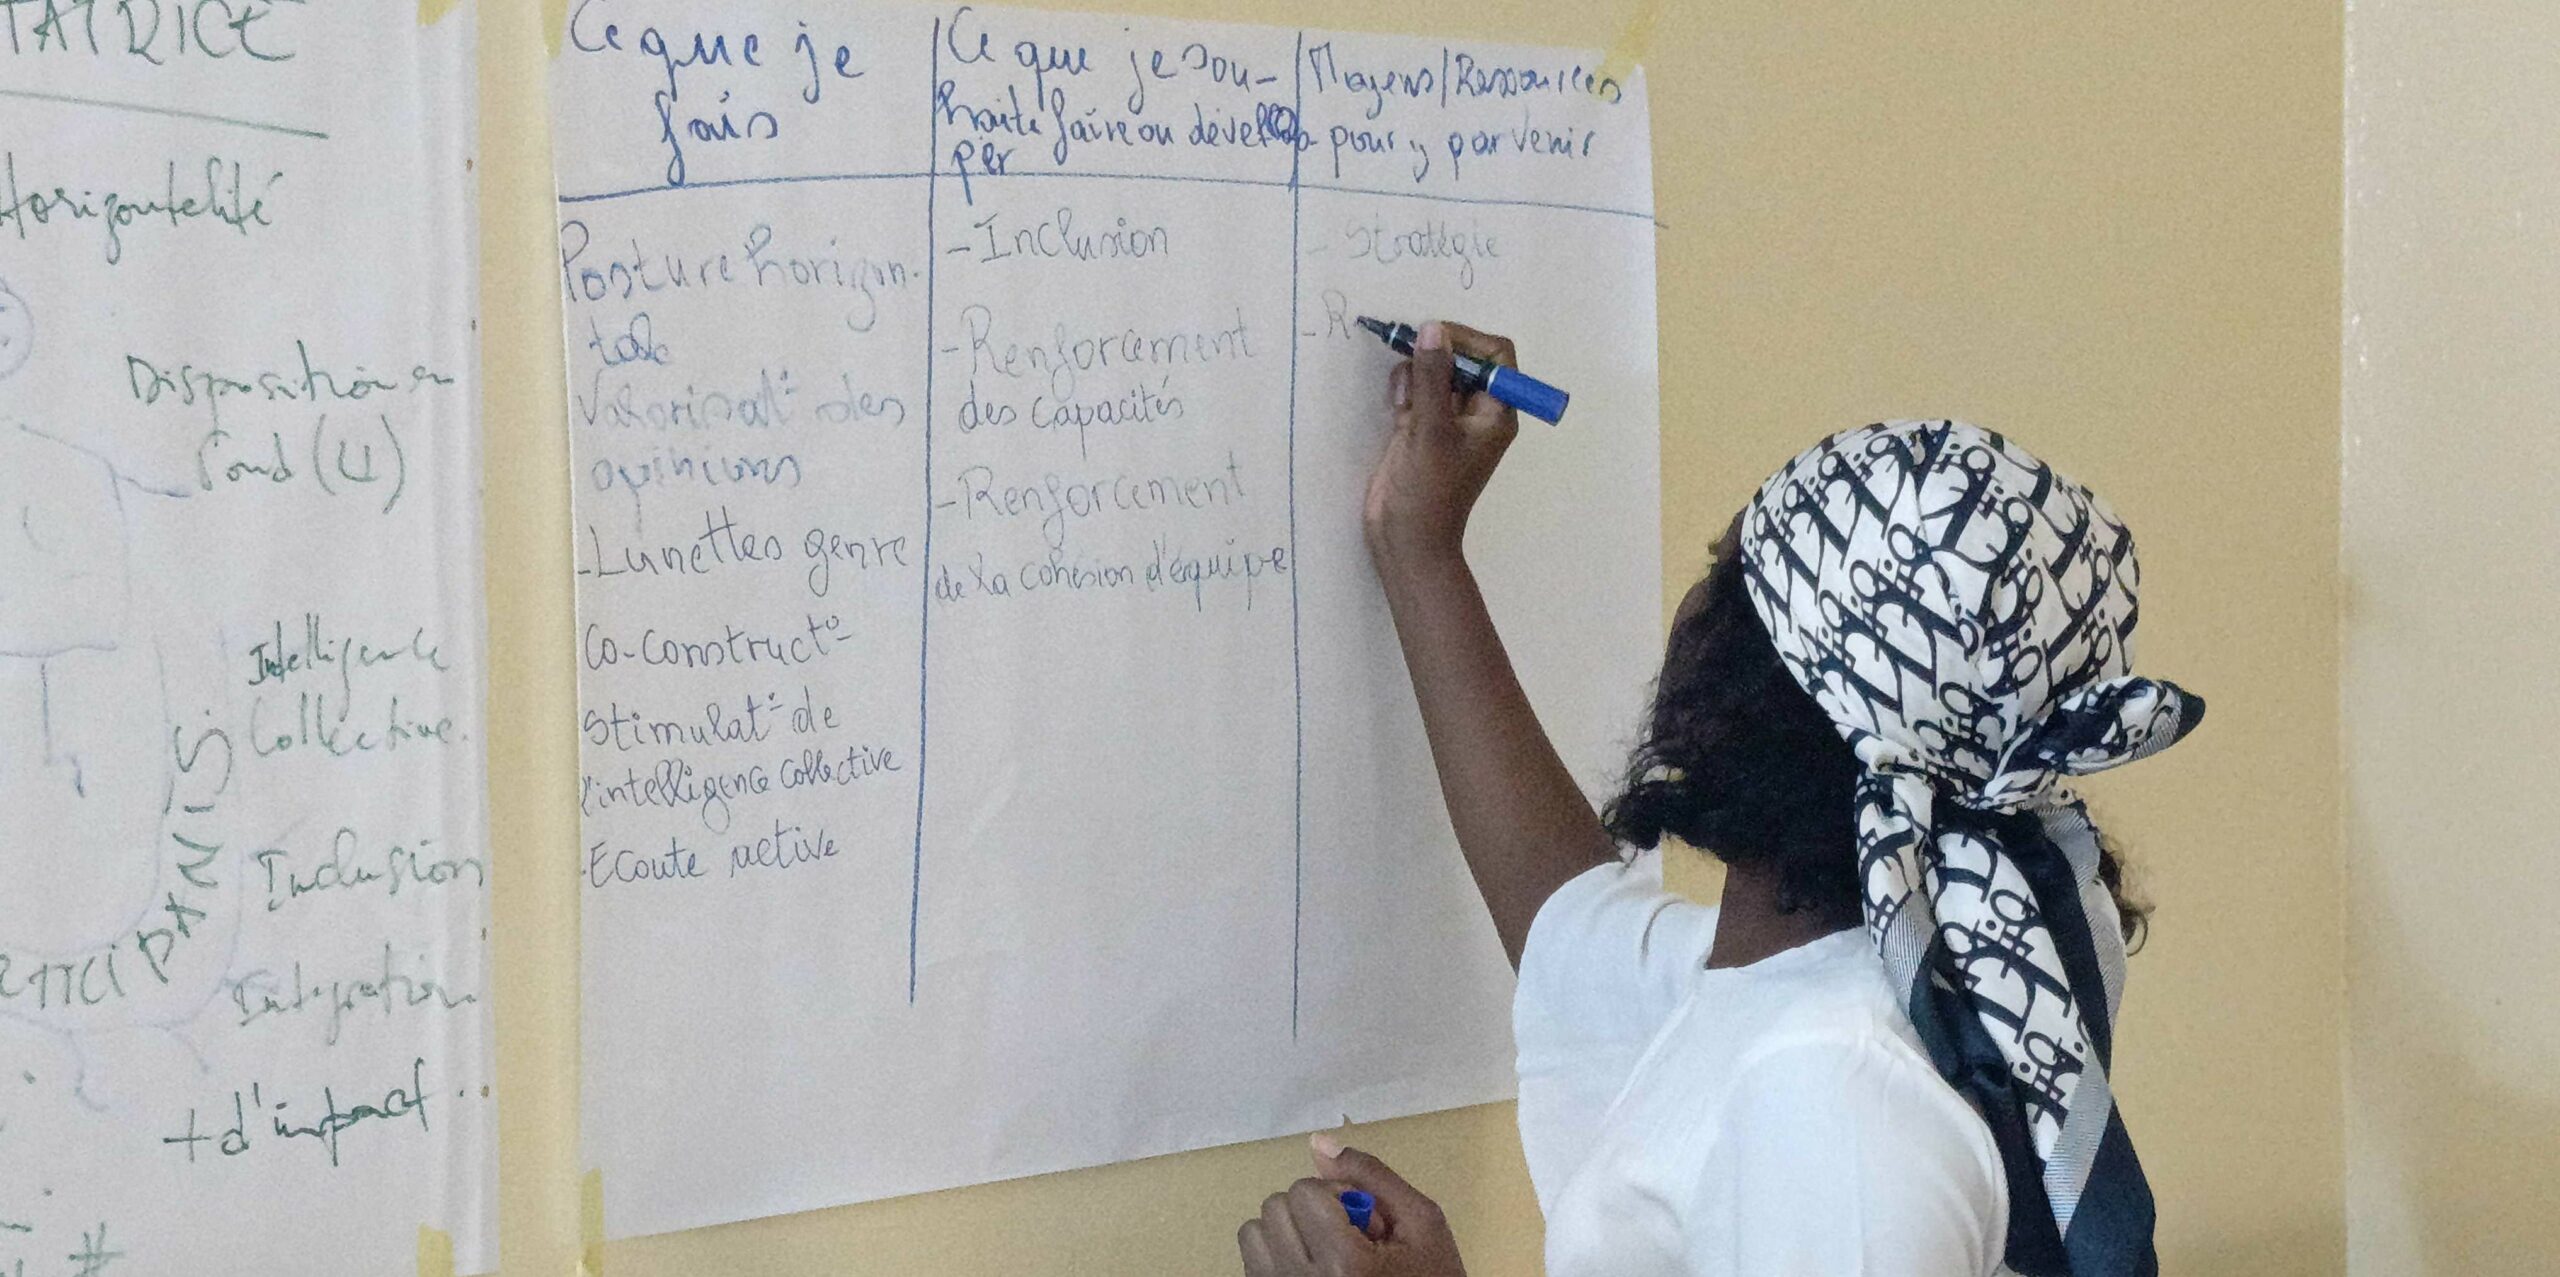 TATRICE
Horizontalité
Disposition en
fond (U)
Intelligence
Collective.
Inclusion
Intégration
+ d'impact.
#
Ce que je
fais
Posture horizon-
tale
Valorisat° des
opinions
- Lunettes genre
Co-construct°
Stimulat° de
l'intelligence collective
- Ecoute active
Ce que je sou-
haite faire ou dévelo
per
- Inclusion
- Renforcement
des capacités
- Renforcement
de la cohésion d'équipe
Moyens/Ressources
pour y parvenir
- Stratégie
- R